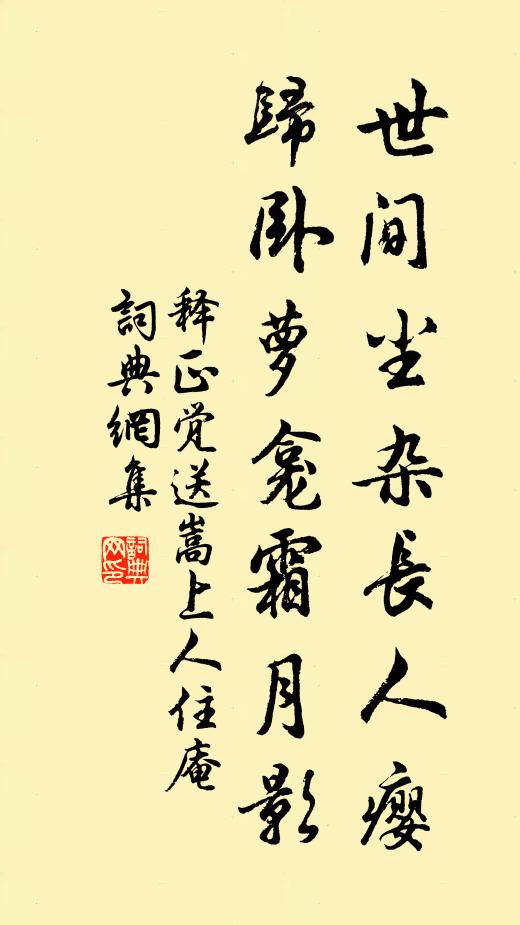 世间尘杂长人瘿
歸卧萝龛霜月影
释正觉送嵩上人住庵
詞典網集
詞典网印